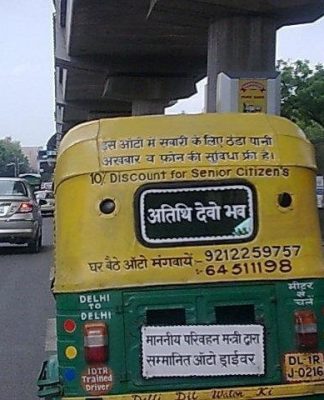 इस ऑटो में सवारी के लिए ठंडा पानी
अखबार व फोन की सुविधा फ्री है।
10% Discount for Senior Citizen's
अतिथि देवो भव
घर बैठे ऑटो मंगवायें:-9212259757
:-64511198
DELHI
TO
DELHI
मीटर
से
चले
माननीय परिवहन मन्त्री द्वारा
सम्मानित ऑटो ड्राईवर
IDTR
Trained
Driver
DL-1R
J-0216
Dilli Dil Walon Ki